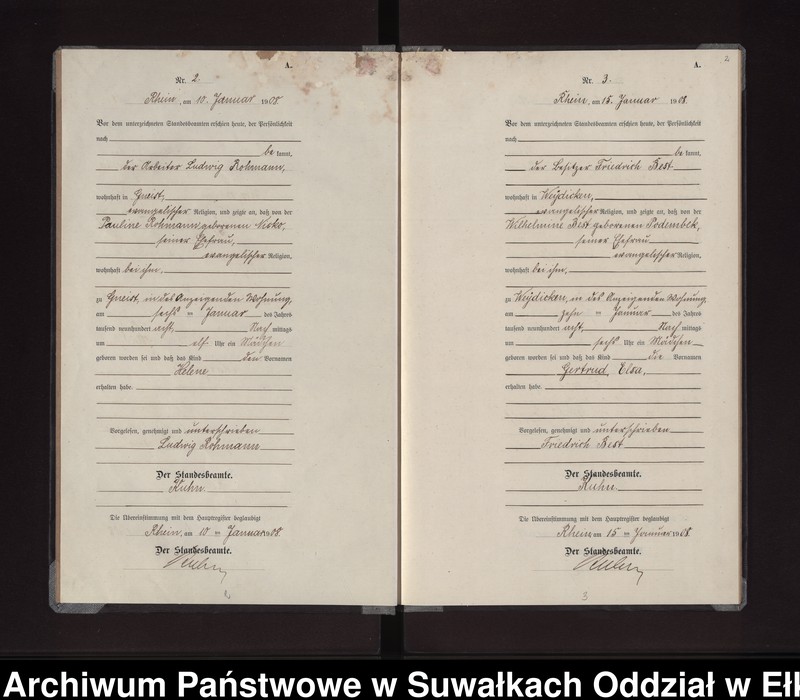 A.
Nr. 2.
Rhein, am 10. Januar 1908
Vor dem unterzeichneten Standesbeamten erschien heute, der Persönlichkeit
nach
be kannt,
der Arbeiter Ludwig Rohmann,
wohnhaft in Gneist,
evangelischer Religion, und zeigte an, daß von der
Pauline Rohmann geborenen
seiner Ehefrau,
evangelischer Religion,
wohnhaft bei ihm,
zu Gneist, in des Anzeigenden Wohnung,
am sechs ten Januar des Jahres
tausend neunhundert acht, Nach mittags
um elf Uhr ein Mädchen
geboren worden sei und daß das Kind den Vornamen
Helene
erhalten habe.
Vorgelesen, genehmigt und unterschrieben
Ludwig Rohmann
Der Standesbeamte.
Kuhn
Die Übereinstimmung mit dem Hauptregister beglaubigt
Rhein, am 10 ten Januar 1908.
Der Standesbeamte.
Kuhn
2
A.
Nr. 3.
Rhein, am 15. Januar 1908.
Vor dem unterzeichneten Standesbeamten erschien heute, der Persönlichkeit
nach
be kannt,
der Besitzer Friedrich Best
wohnhaft in Weydicken,
evangelischer Religion, und zeigte an, daß von der
Wilhelmine Best geborenen Podembek,
seiner Ehefrau
evangelischer Religion,
wohnhaft bei ihm,
zu Weydicken, in des Anzeigenden Wohnung,
am zehn ten Januar des Jahres
tausend neunhundert acht, Nach mittags
um sechs Uhr ein Mädchen
geboren worden sei und daß das Kind die Vornamen
Gertrud, Elsa,
erhalten habe.
Vorgelesen, genehmigt und unterschrieben
Friedrich Best
Der Standesbeamte.
Kuhn.
Die Übereinstimmung mit dem Hauptregister beglaubigt
Rhein, am 15 ten Januar 1908.
Der Standesbeamte.
Kuhn
3
Archiwum Państwowe w Suwałkach Oddział w Eł